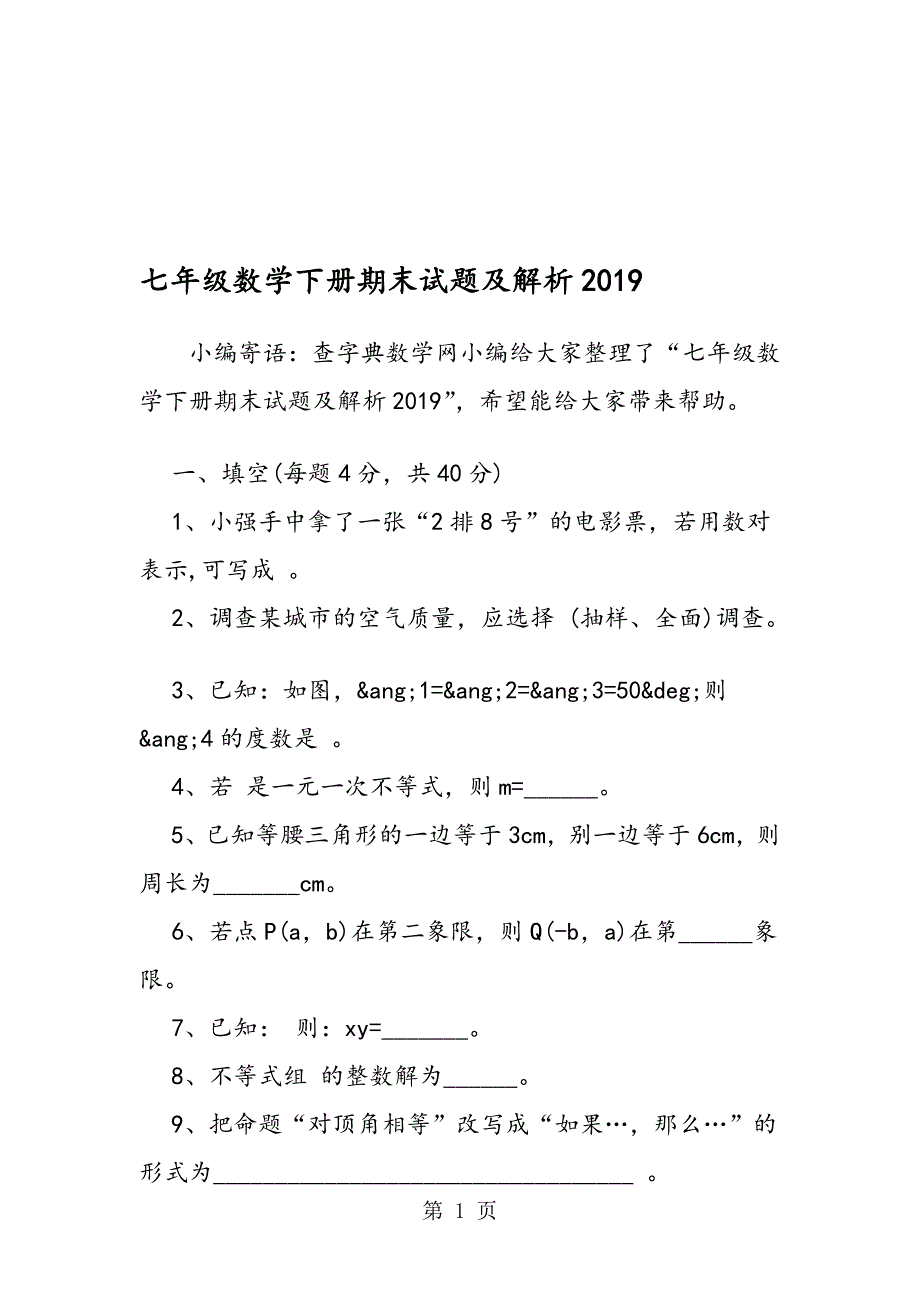 七年级数学下册期末试题及解析2019
小编寄语：查字典数学网小编给大家整理了“七年级数
学下册期末试题及解析2019”，希望能给大家带来帮助。
一、填空(每题4分，共40分)
1、小强手中拿了一张“2排8号”的电影票，若用数对
表示,可写成 。
2、调查某城市的空气质量，应选择 (抽样、全面)调查。
3、已知：如图，&ang;1=&ang;2=&ang;3=50&deg;则
&ang;4的度数是 。
4、若 是一元一次不等式，则m=______。
5、已知等腰三角形的一边等于3cm，别一边等于6cm，则
周长为_______cm。
6、若点P(a，b)在第二象限，则Q(-b，a)在第______象
限。
7、已知： 则：xy=_______。
8、不等式组 的整数解为______。
9、把命题“对顶角相等”改写成“如果…，那么…”的
形式为__________________________________ 。
第 1 页